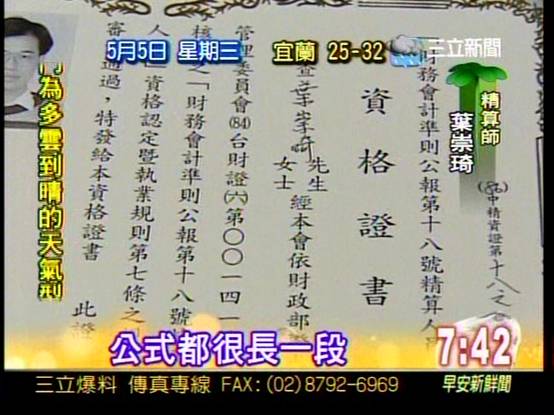 5月5日 星期三
宜蘭 25-32
三立新聞
精算師
葉崇琦
為多雲到晴的天氣型
財務會計準則公報第十八號精算人員
資格證書
先生
女士
經本會依財政部證
管理委員會(84)台財證(六)第〇〇一四一
之「財務會計準則公報第十八號精
人」資格認定暨執業規則第七條之
通過，特發給本資格證書
此證
公式都很長一段
7:42
三立爆料 傳真專線 FAX:(02)8792-6969
早安新鮮聞